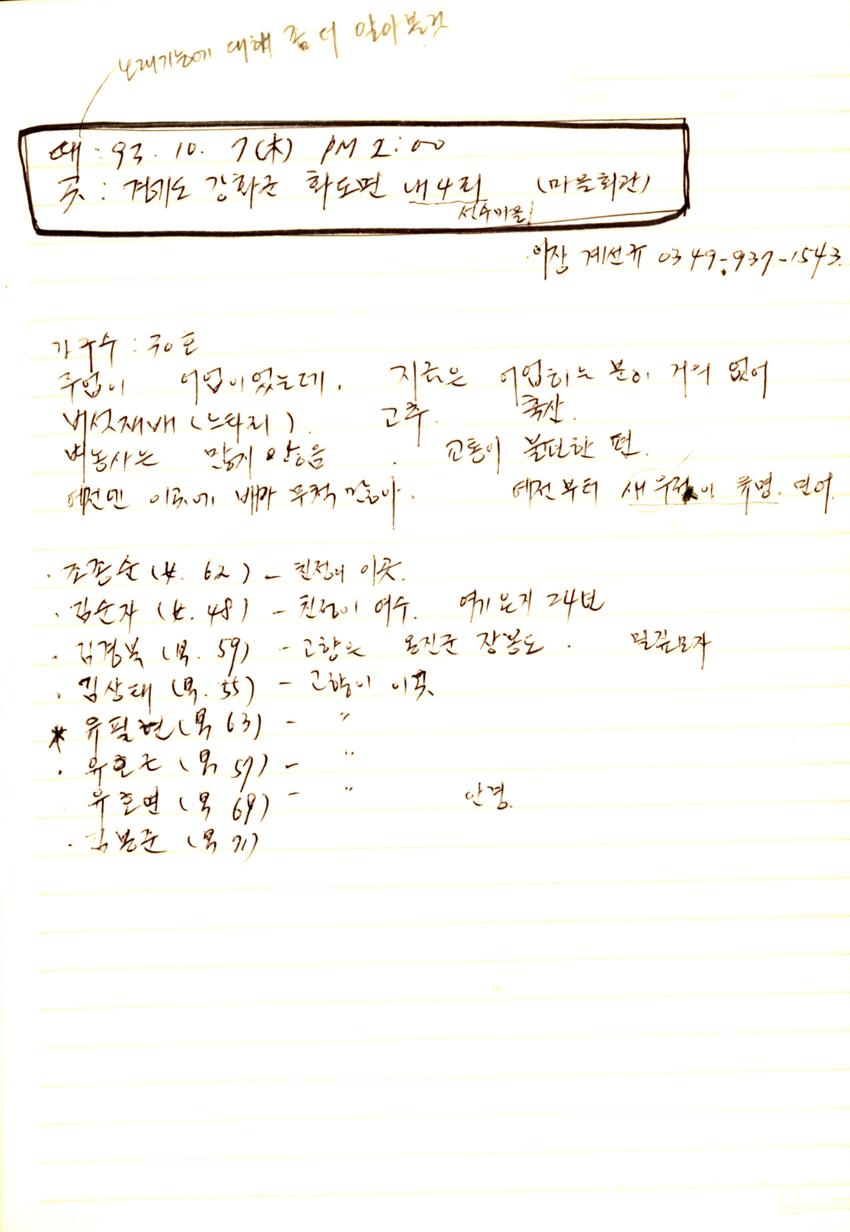 노래기능에 대해 좀 더 알아볼것
때 : 93. 10. 7(木) PM 2:00
곳 : 경기도 강화군 화도면 내4리 (마을회관)
선수마을
이장 계선규 0349-937-1543
가구수 : 30호
주업이 어업이었는데, 지금은 어업하는 분이 거의 없어
버섯재배(느타리). 고추. 축산.
벼농사는 많지 않음. 교통이 불편한 편.
예전엔 이곳에 배가 무척 많아. 예전부터 새우젓이 유명.
· 조종순 (女. 62) - 친정이 이곳.
· 김순자 (女. 48) - 친정이 여수. 여기 온지 24년
· 김경복 (男. 59) - 고향은 옹진군 장봉도. 밀짚모자
· 김상태 (男. 55) - 고향이 이곳.
* 유필현 (男 63) - 〃
· 유호근 (男 57) - 〃
유호연 (男 69) - 〃 안경.
· 김봉준 (男 71)